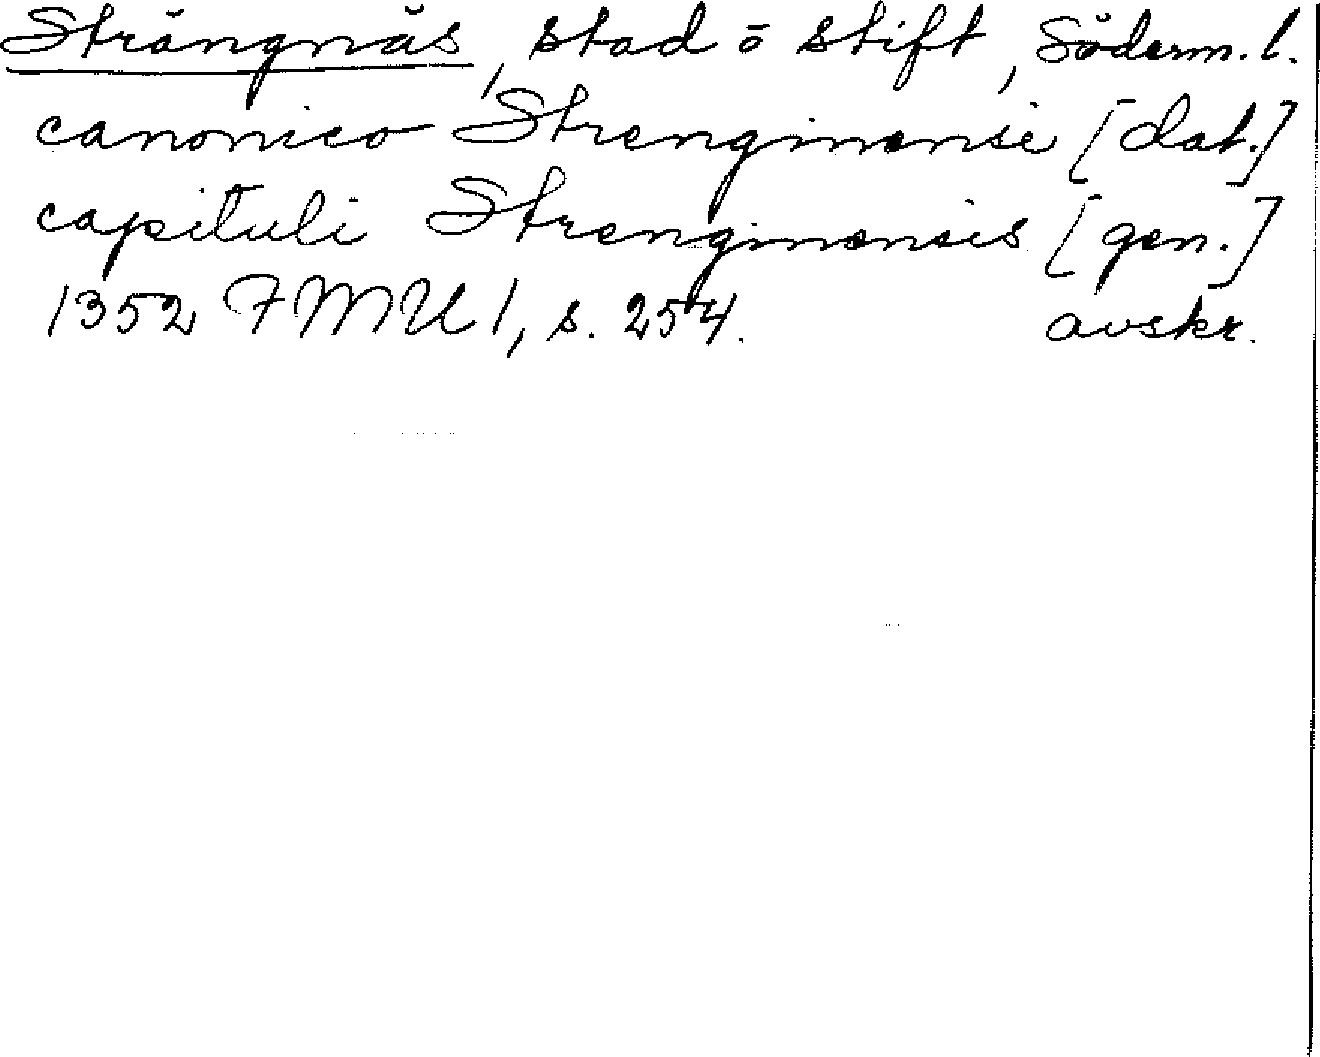 Strängnäs, stad o stift, Söderm. l.
canonico Strenginensi [dat.]
capituli Strenginensis [gen.]
1352 FMU 1, s. 254. avskr.